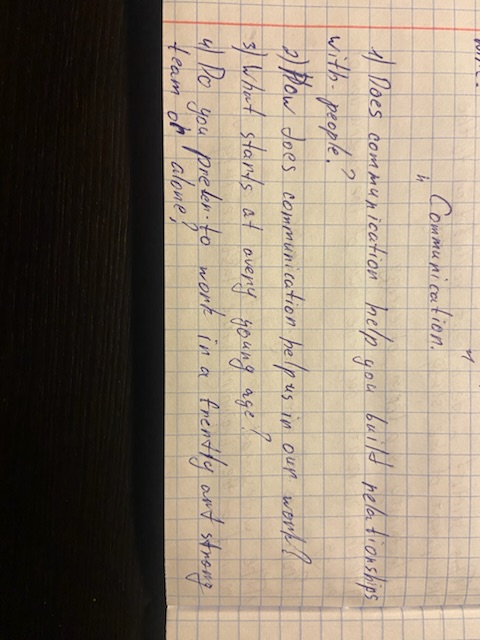 "Communication."
1) Does communication help you build relationships
with people?
2) How does communication help us in our work?
3) What starts at avery young age?
4) Do you prefer to work in a frently ant strong
team or alone?